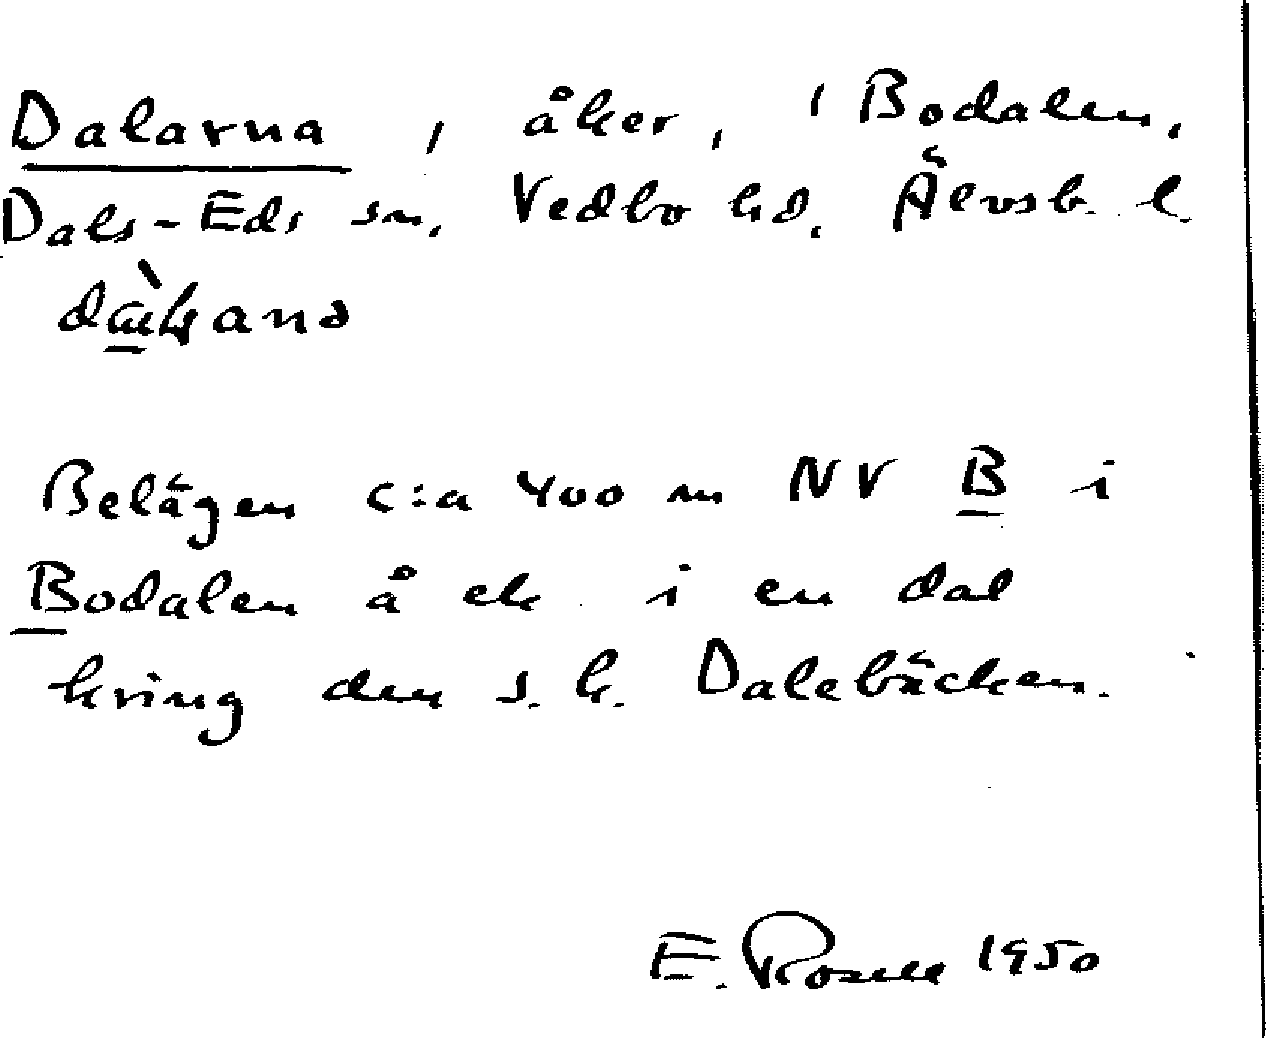 Dalarna, åker, i Bodalen,
Dals-Eds sn, Vedbo hd, Älvsb. l.
Belägen c:a 400 m NV B i
Bodalen å ek i en dal
kring den s. k. Dalebäcken.
E. Rosell 1950